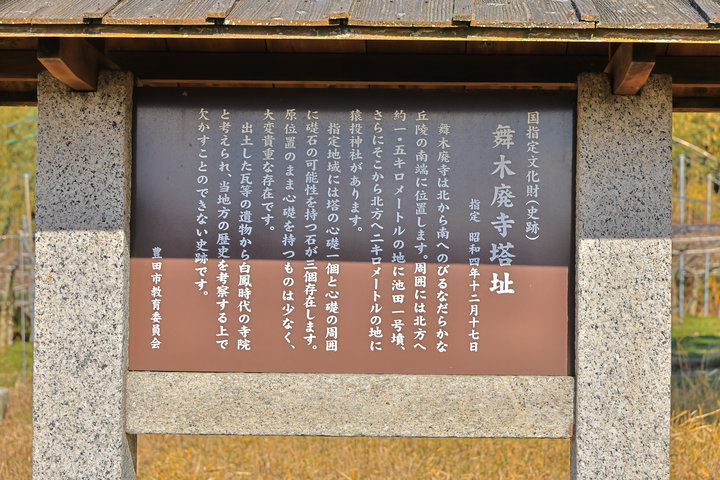 国指定文化財(史跡)
舞木廃寺塔址
指定 昭和四年十二月十七日
舞木廃寺は北から南へのびるなだらかな
丘陵の南端に位置します。周囲には北方へ
約一・五キロメートルの地に池田一号墳、
さらにそこから北方へ二キロメートルの地に
猿投神社があります。
指定地域には塔の心礎一個と心礎の周囲
に礎石の可能性を持つ石が三個存在します。
原位置のまま心礎を持つものは少なく、
大変貴重な存在です。
出土した瓦等の遺物から白鳳時代の寺院
と考えられ、当地方の歴史を考察する上で
欠かすことのできない史跡です。
豊田市教育委員会